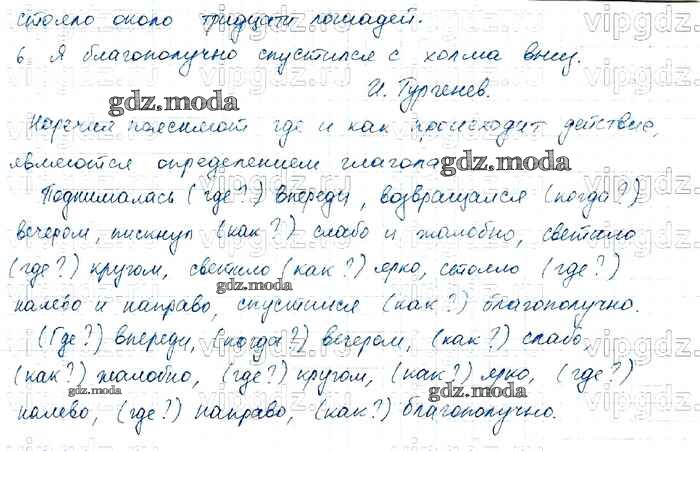 стояло около тридцати лошадей.
6. Я благополучно спустился с холма вниз.
И. Тургенев.
Наречия поясняют где и как происходит действие,
являются определением глагола
Поднималась (где?) впереди, возвращался (когда?)
вечером, пискнул (как?) слабо и жалобно, светило
(где?) кругом, светило (как?) ярко, стояло (где?)
налево и направо, спустился (как?) благополучно.
(Где?) впереди, (когда?) вечером, (как?) слабо,
(как?) жалобно, (где?) кругом, (как?) ярко, (где?)
налево, (где?) направо, (как?) благополучно.
gdz.moda
gdz.moda
gdz.moda
gdz.moda
gdz.moda
gdz.moda